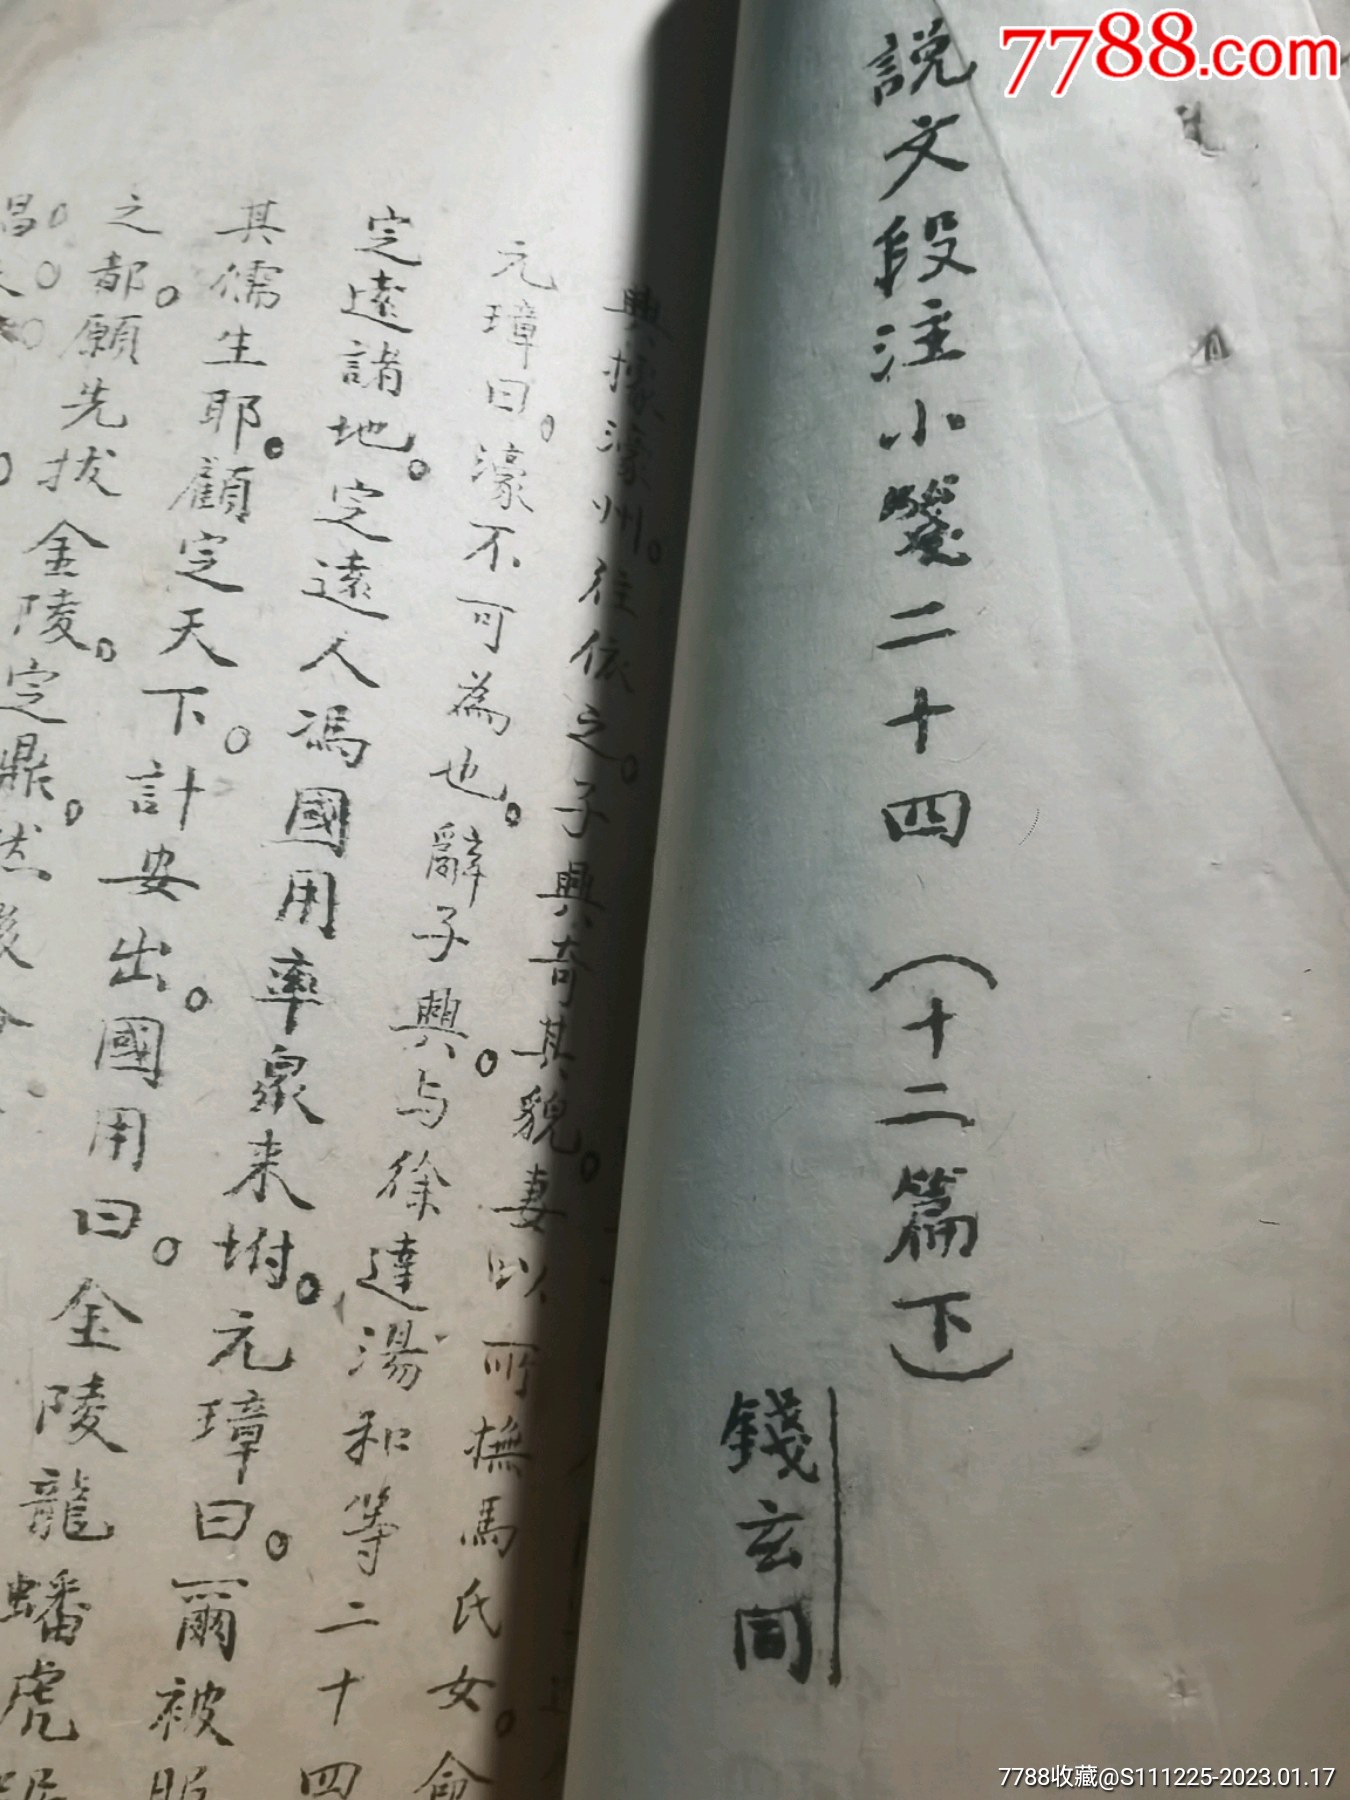 7788.com
說文段注小箋二十四（十二篇下）
錢玄同
興據濠州。往依之。子興奇其貌。妻以所撫馬氏女。命
元璋曰。濠不可為也。辭子興。与徐達湯和等二十四
定遠諸地。定遠人馮國用率衆来坿。元璋曰。爾被服
其儒生耶。顧定天下。計安出。國用曰。金陵龍蟠虎踞
之都。願先拔金陵。定鼎。然後
昌。
7788收藏@S111225-2023.01.17